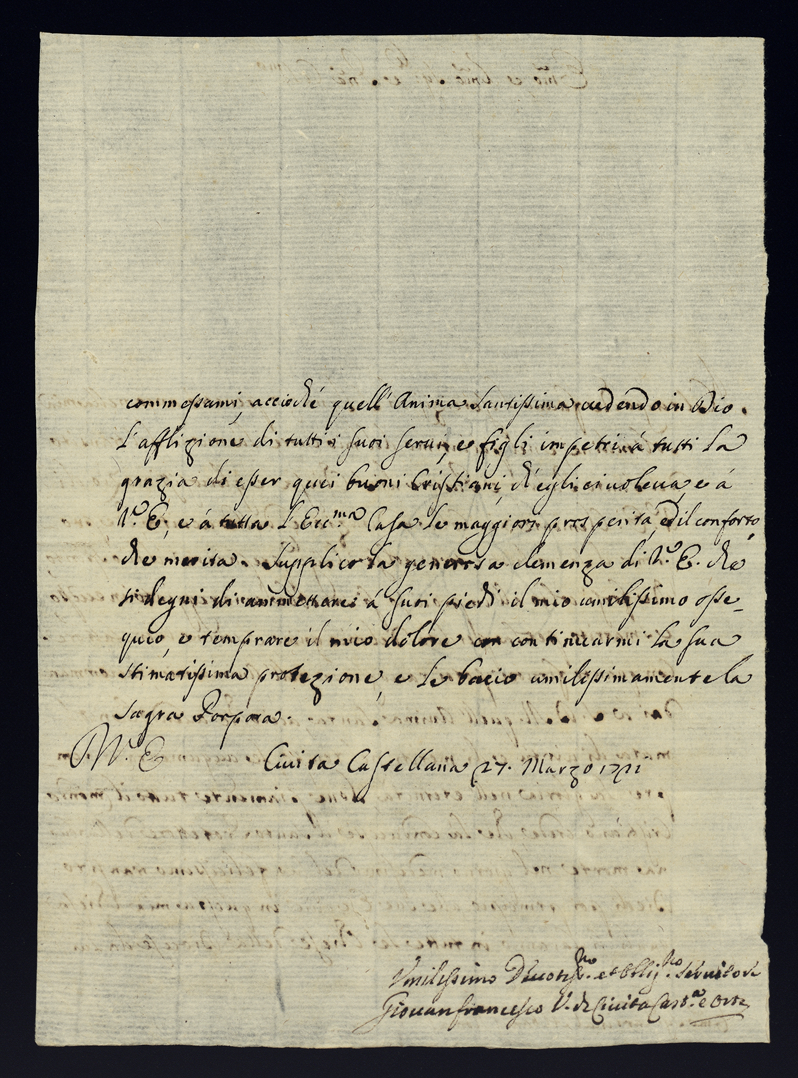 commessami, acciochè quell'Anima Santissima vedendo in Dio
l'afflizione di tutti i suoi servi, e figli impetri à tutti la
grazia di esser quei buoni Cristiani, ch'egli ci voleva, e à
V.ra E., e à tutta l'Ecc.ma Casa le maggiori prosperità, ed il conforto
che merita. Supplico la generosa clemenza di V.ra E. che
si degni di ammettere à suoi piedi il mio umilissimo osse-
quio, e temprare il mio dolore con continuarmi la sua
stimatissima protezione, e le bacio umilissimamente la
sagra Porpora.
V.ra E.
Civita Castellana 27. Marzo 1721
Umilissimo Devotiss.mo et Obblig.mo Servitore
Giovanfrancesco V. di Civita Cast.na e Orte